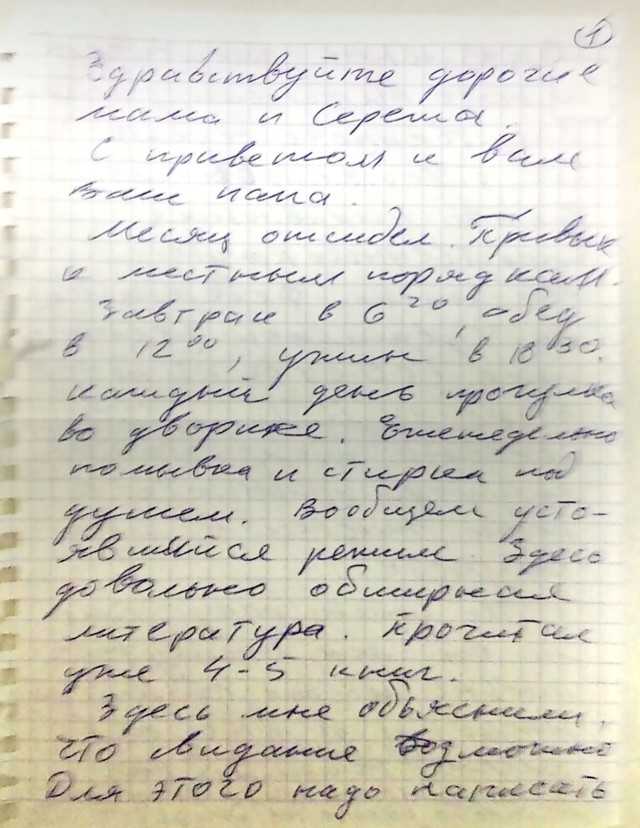 1
Здравствуйте дорогие
мама и Сережа.
С приветом к вам
Ваш папа.
Месяц отсидел. Привык
к местным порядкам.
Завтрак в 6 20, обед
в 12 00, ужин в 18 30.
Каждый день прогулка
во дворике. Еженедельно
помывка и стирка под
душем. Вообщем усто-
явшийся режим. Здесь
довольно обширная
литература. Прочитал
уже 4-5 книг.
Здесь мне объяснили,
что свидание возможно
Для этого надо написать